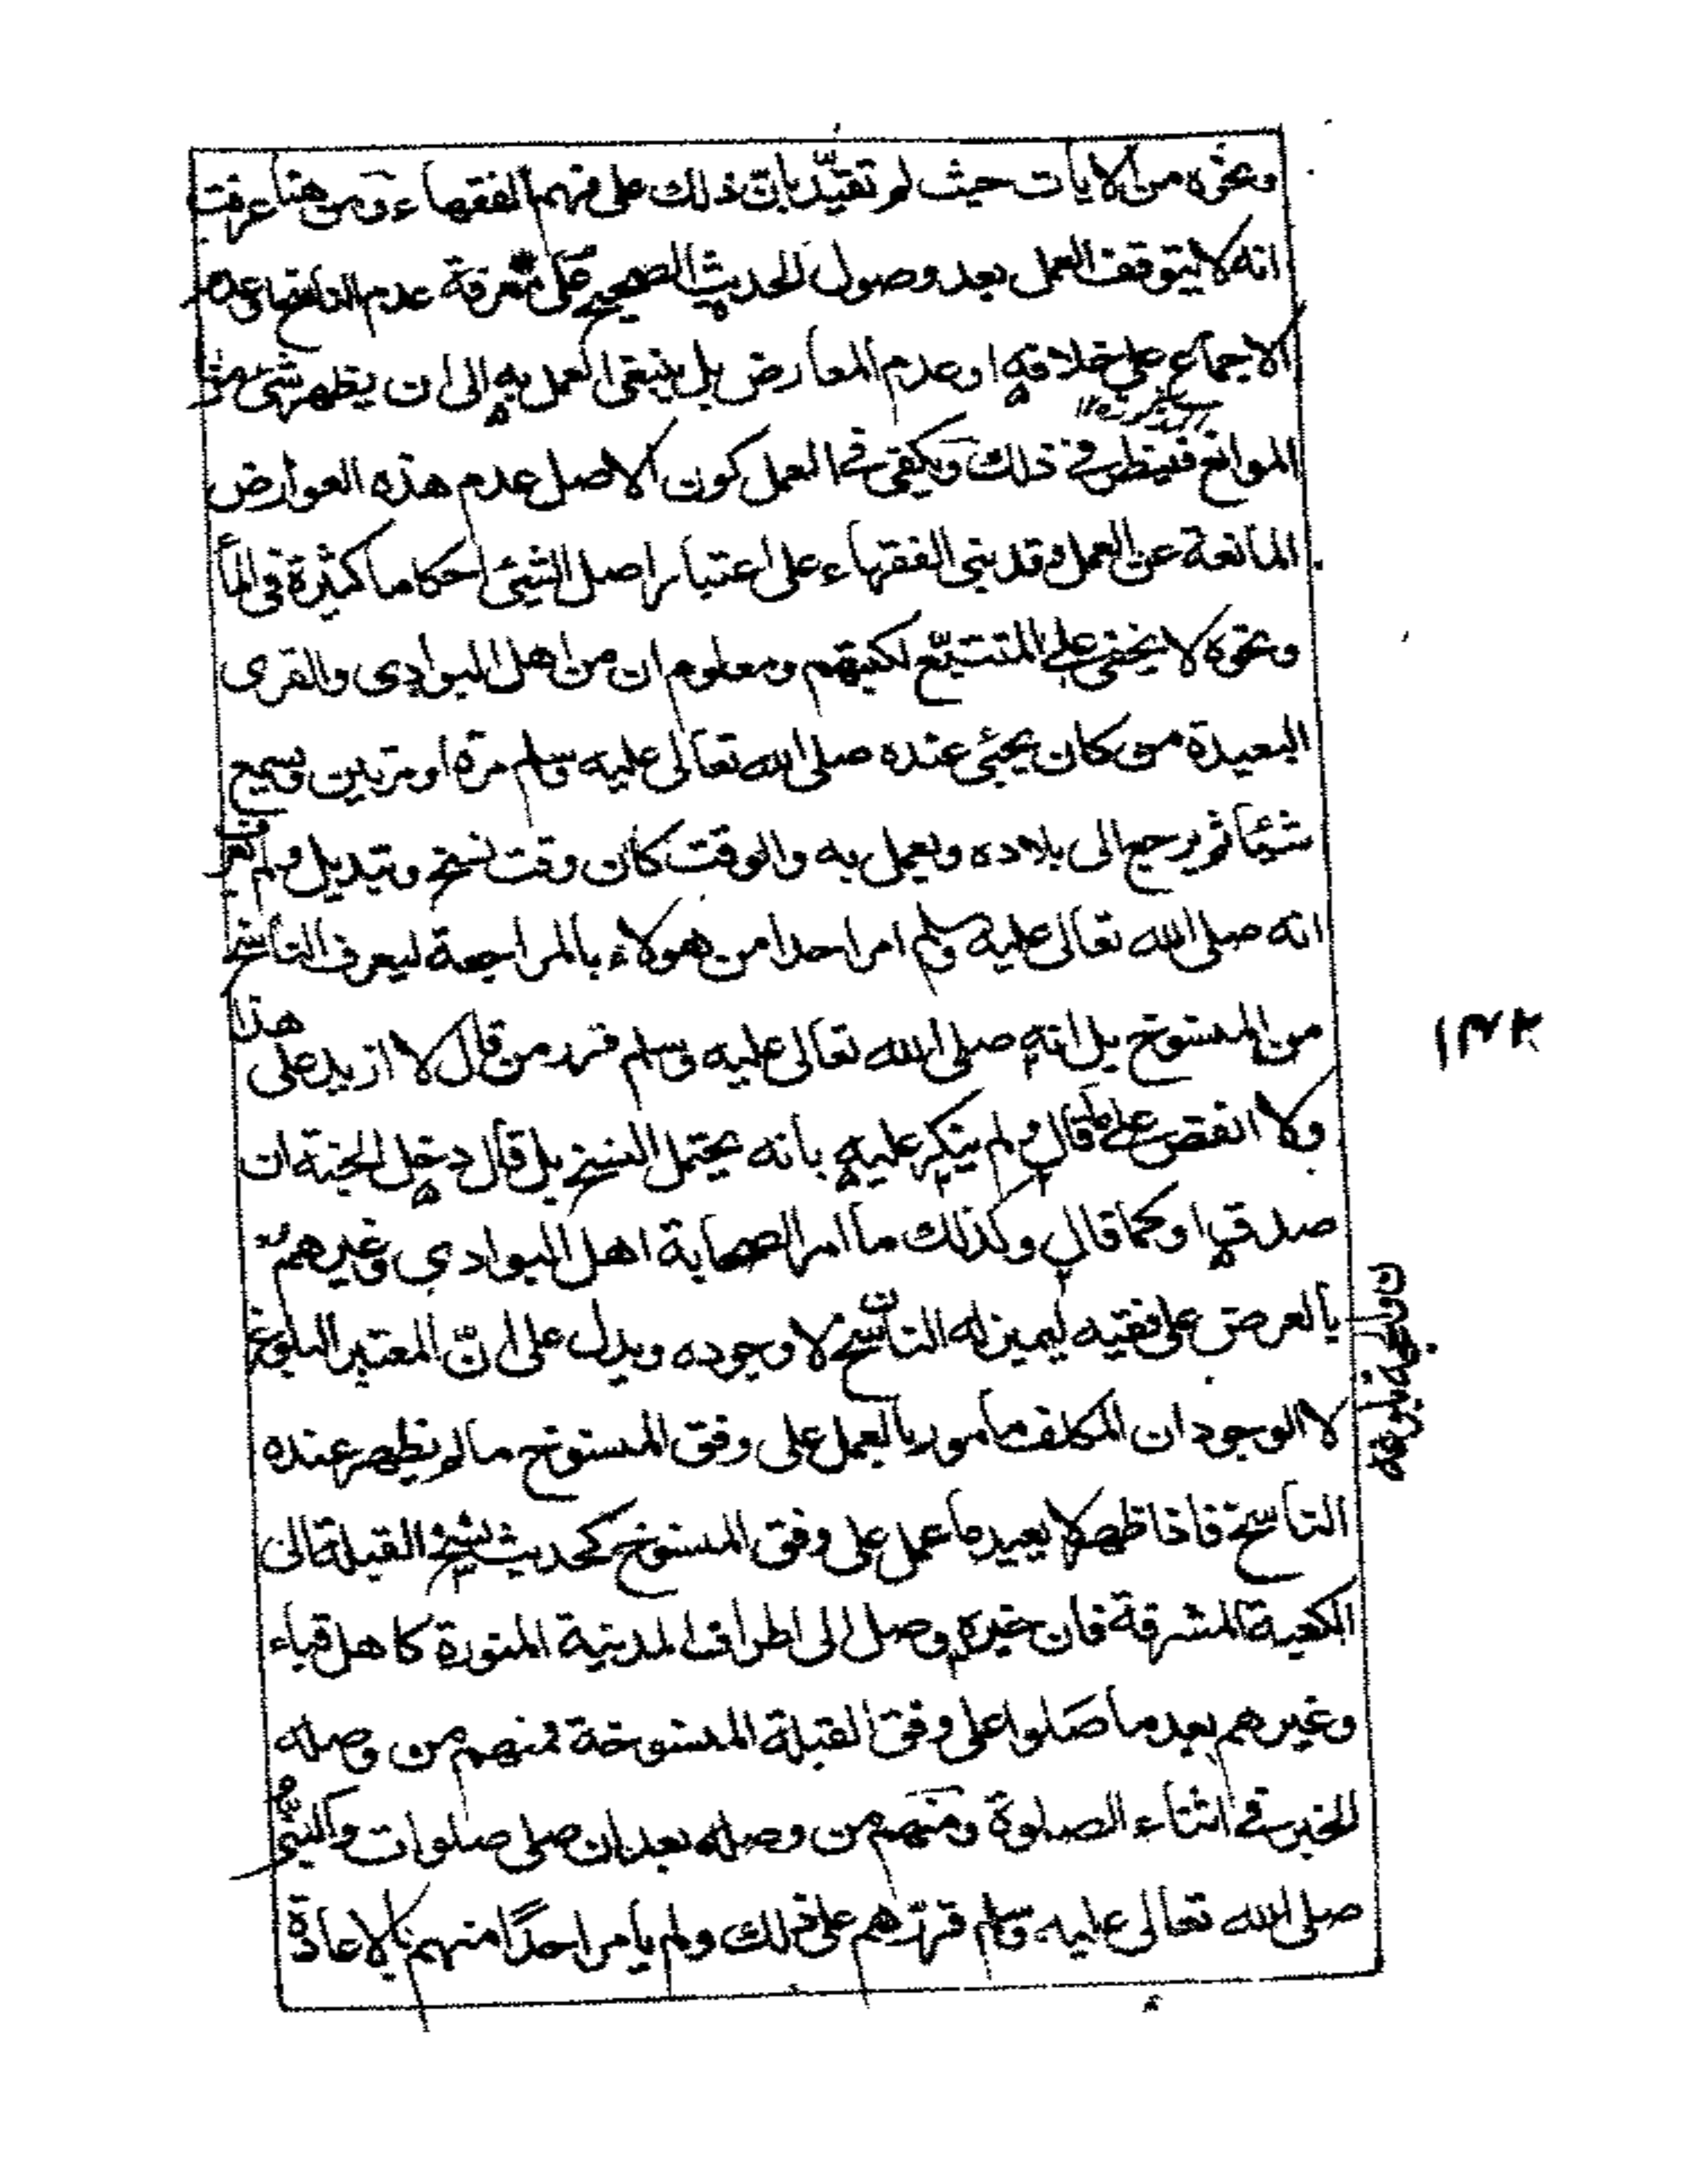 ونحوه من الايات حيث لم تقيّد بانّ ذلك على فهم الفقهاء ومن هنا عرفت
انه لا يتوقف العمل بعد وصول الحديث الصحيح على معرفة عدم الناسخ او عدم
الاجماع على خلافه او عدم المعارض بل ينبغي العمل به الى ان يظهر شئ من
الموانع فينظر في ذلك ويكفي في العمل كون الاصل عدم هذه العوارض
المانعة عن العمل وقد بنى الفقهاء على اعتبار اصل الشئ احكاما كثيرة في الماء
ونحوه لا يخفى على المتتبّع لكتبهم ومعلوم ان من اهل البوادى والقرى
البعيدة من كان يجئ عنده صلى الله تعالى عليه وسلم مرة او مرتين ويسمع
شيئا ثم يرجع الى بلاده ويعمل به والوقت كان وقت نسخ وتبديل ولم يعرف
انه صلى الله تعالى عليه وسلم امر احدا من هولاء بالمراجعة ليعرف الناسخ
من المنسوخ بل انه صلى الله تعالى عليه وسلم قرر من قال لا ازيد على هذا
ولا انقص على ما قال ولم ينكر عليه بانه يحتمل النسخ بل قال دخل الجنة ان
صدق او كما قال وكذلك ما امر الصحابة اهل البوادي وغيرهم
بالعرض على فقيه ليميز له الناسخ لا وجوده ويدل على انّ المعتبر البلوغ
لا الوجود ان المكلف مامور بالعمل على وفق المنسوخ ما لم يظهر عنده
الناسخ فاذا ظهر لا يعيد ما عمل على وفق المنسوخ كحديث نسخ القبلة الى
الكعبة المشرفة فان خبره وصل الى اطراف المدينة المنورة كاهل قباء
وغيرهم بعد ما صلوا على وفق القبلة المنسوخة فمنهم من وصله
الخبر في اثناء الصلوة ومنهم من وصله بعد ان صلى صلوات والنبي
صلى الله تعالى عليه وسلم قررهم على ذلك ولم يأمر احدًا منهم بالاعادة